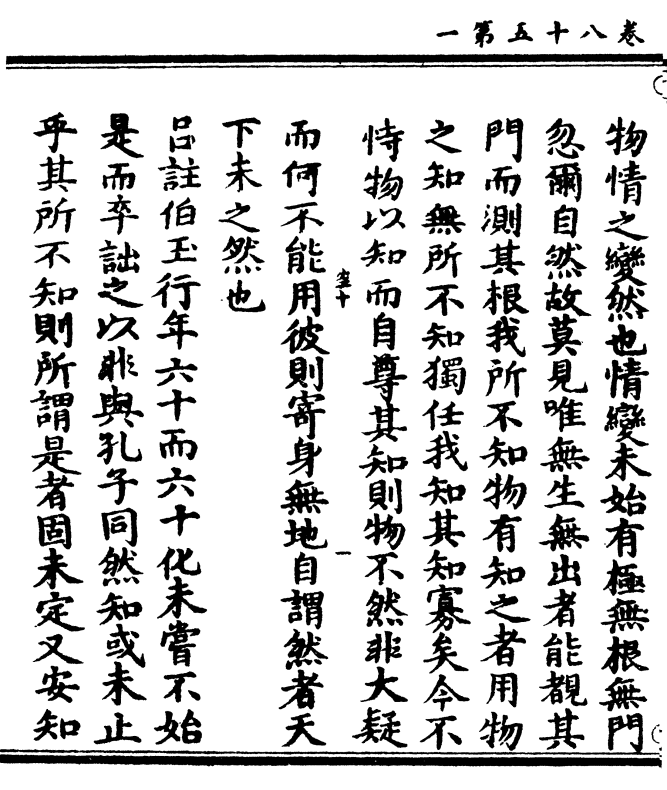 一第五十八卷
物情之變然也情變未始有極無根無門
忽爾自然故莫見唯無生無出者能覩其
門而測其根我所不知物有知之者用物
之知無所不知獨任我知其知寡矣今不
恃物以知而自尊其知則物不然非大疑
而何不能用彼則寄身無地自謂然者天
下未之然也
呂註伯玉行年六十而六十化未嘗不始
是而卒詘之以非與孔子同然知或未止
乎其所不知則所謂是者固未定又安知